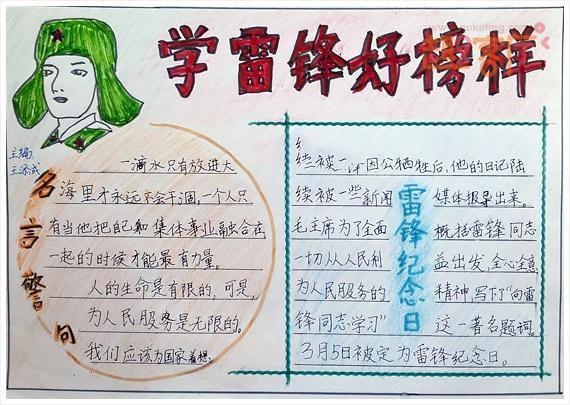 学雷锋好榜样
主编
名言警句
一滴水只有放进大
海里才永远不会干涸,一个人只
有当他把自己和集体事业融合在
一起的时候才能最有力量。
人的生命是有限的,可是,
为人民服务是无限的。
我们应该为国家着想。
雷锋纪念日
因公牺牲后,他的日记陆
续被一些新闻媒体报导出来。
毛主席为了全面概括雷锋同志
一切从人民利益出发,全心全意
为人民服务的精神,写下了“向雷
锋同志学习”这一著名题词。
3月5日被定为雷锋纪念日。